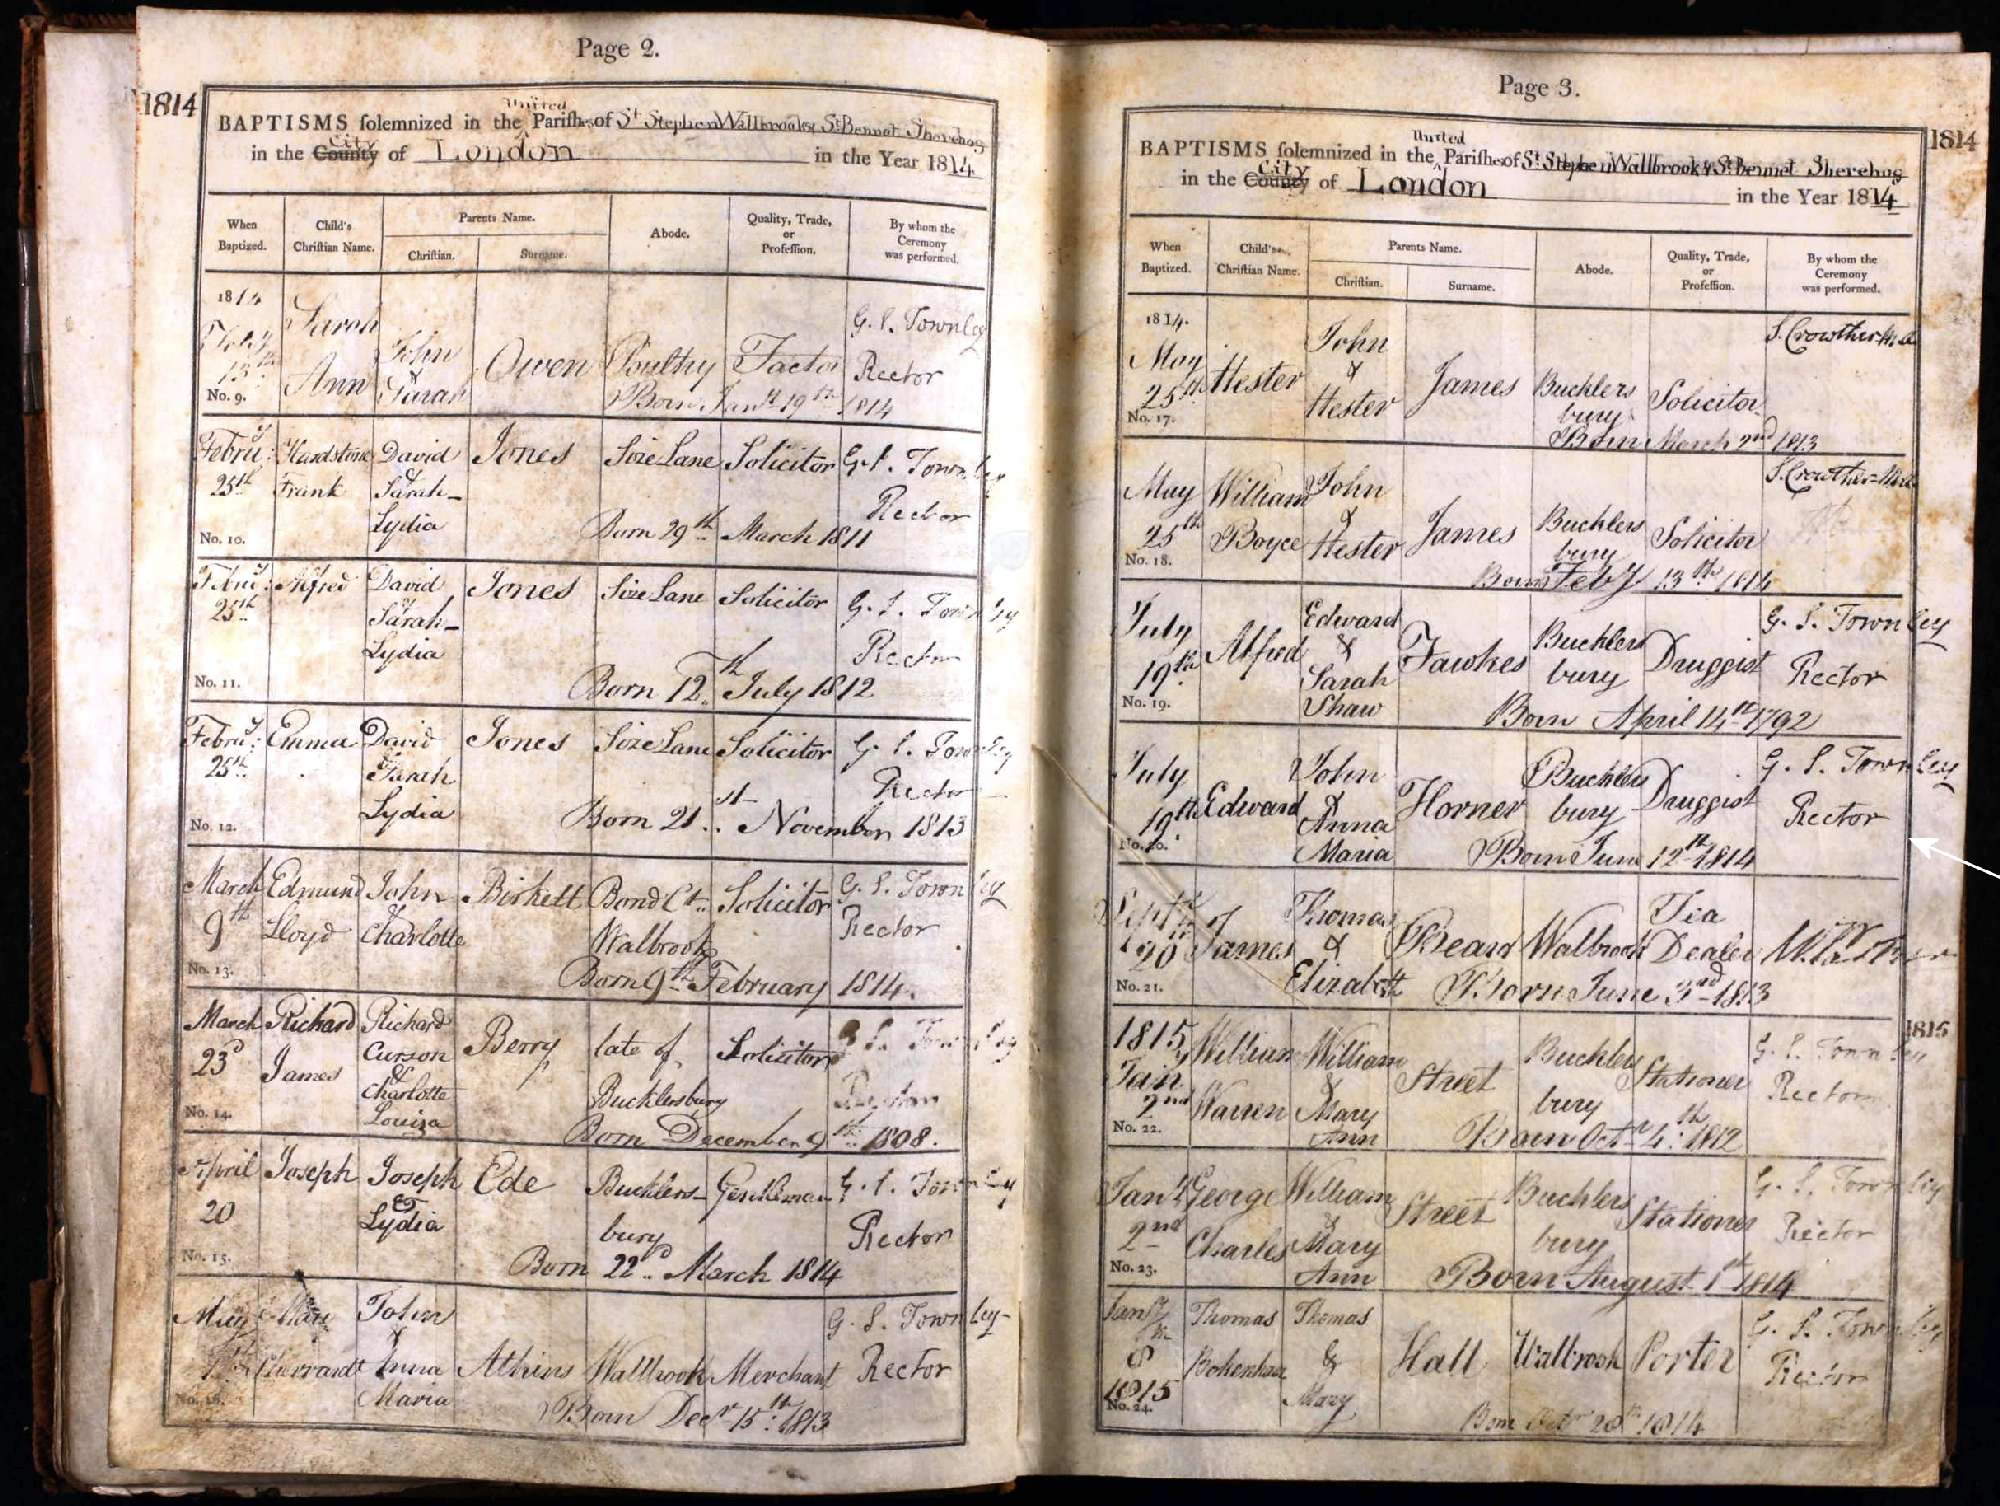 Page 2.
1814
BAPTISMS solemnized in the United Parishes of St Stephen Wallbrook & St Bennet Sherehog
in the County City of London in the Year 1814
When Baptized.
Child's Christian Name.
Parents Name.
Christian.
Surname.
Abode.
Quality, Trade, or Profession.
By whom the Ceremony was performed.
1814
Feby 13th
No. 9.
Sarah Ann
John & Sarah
Owen
Poultry
Factor
G. S. Townley Rector
Born Jany 19th 1814
Febru'y 25th
No. 10.
Frank
David & Sarah Lydia
Jones
Size Lane
Solicitor
G. S. Townley Rector
Born 29th March 1811
Febru'y 25th
No. 11.
Alfred
David & Sarah Lydia
Jones
Size Lane
Solicitor
G. S. Townley Rector
Born 12th July 1812
Febru'y 25th
No. 12.
Emma
David & Sarah Lydia
Jones
Size Lane
Solicitor
G. S. Townley Rector
Born 21st November 1813
March 9th
No. 13.
Edmund Lloyd
John & Charlotte
Birkett
Bond Ct. Walbrook
Solicitor
G. S. Townley Rector
Born 9th February 1814.
March 23d
No. 14.
Richard James
Richard Curson & Charlotte Louiza
Berry
late of Bucklersbury
Solicitor
G. S. Townley Rector
Born December 9th 1808.
April 20
No. 15.
Joseph
Joseph & Lydia
Ede
Bucklersbury
Gentleman
G. S. Townley Rector
Born 22d March 1814
May
No. 16.
Mary
John & Anna Maria
Atkins
Wallbrook
Merchant
G. S. Townley Rector
Born Decr 15th 1813
Page 3.
1814
BAPTISMS solemnized in the United Parishes of St Stephen Wallbrook & St Bennet Sherehog
in the County City of London in the Year 1814
When Baptized.
Child's Christian Name.
Parents Name.
Christian.
Surname.
Abode.
Quality, Trade, or Profession.
By whom the Ceremony was performed.
1814.
May 25th
No. 17.
Hester
John & Hester
James
Bucklersbury
Solicitor
S. Crowther
Born March 2nd 1813
May 25th
No. 18.
William Boyce
John & Hester
James
Bucklersbury
Solicitor
S. Crowther
Born Feby 13th 1814
July 19th
No. 19.
Alfred
Edward & Sarah Shaw
Fawkes
Bucklersbury
Druggist
G. S. Townley Rector
Born April 14th 1792
July 19th
No. 20.
Edward
John & Anna Maria
Horner
Bucklersbury
Druggist
G. S. Townley Rector
Born June 12th 1814
Septr 20
No. 21.
James
Thomas & Elizabeth
Beard
Walbrook
Tea Dealer
Born June 3rd 1813
1815
1815 Jany 2nd
No. 22.
William Warren
William & Mary Ann
Street
Bucklersbury
Stationer
G. S. Townley Rector
Born Octr 4th 1812
Jany 2nd
No. 23.
George Charles
William & Mary Ann
Street
Bucklersbury
Stationer
G. S. Townley Rector
Born August 1st 1814
Jany 8th 1815
No. 24.
Thomas
Thomas & Mary
Hall
Walbrook
Porter
G. S. Townley Rector
Born 28th 1814